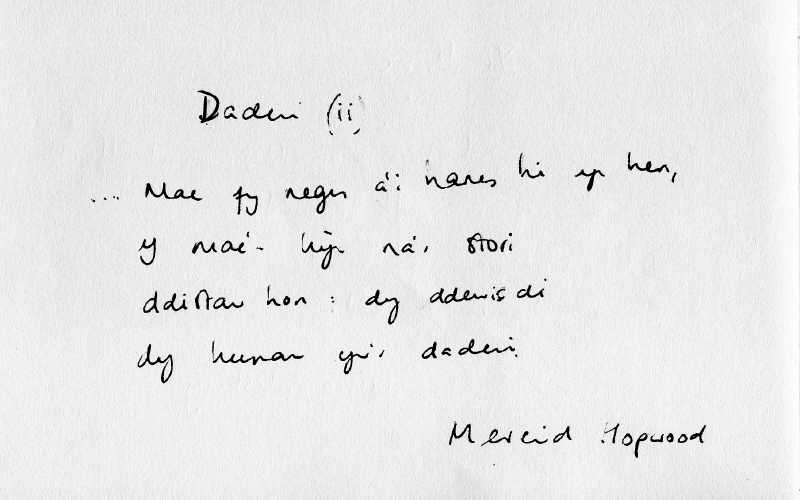 Dadeni (ii)
... Mae fy neges a'i hanes hi yn hen,
y mae'n hŷn na'r stori
ddistaw hon : dy ddewis di
dy hunan yw'r dadeni.
Mererid Hopwood